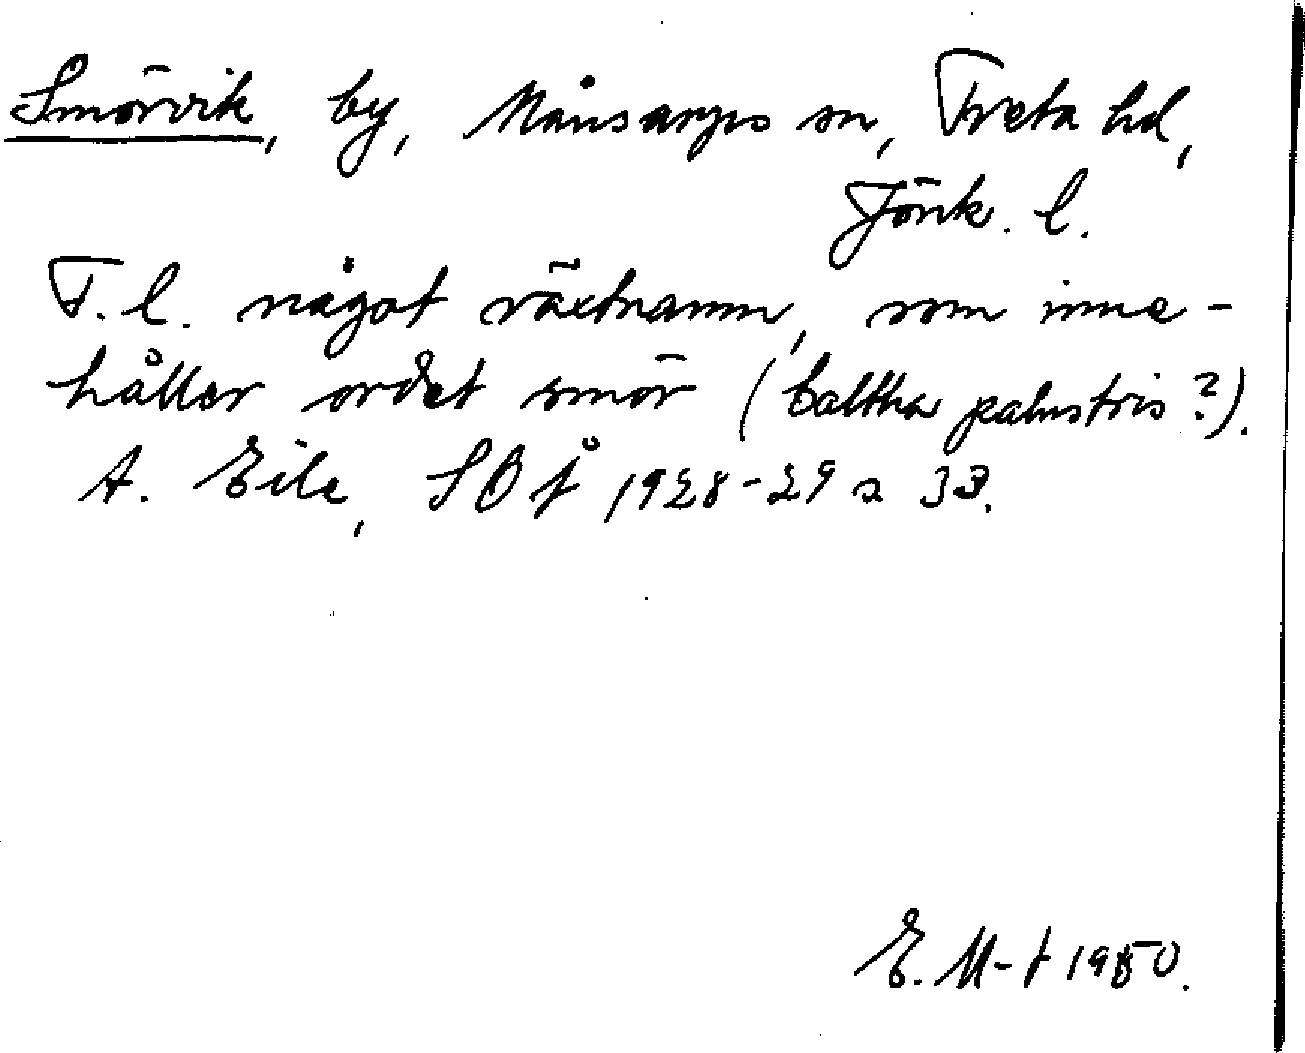 Smörvik, by, Månsarps sn, Tveta hd,
Jönk. l.
F. l. något växtnamn, som inne-
håller ordet smör (caltha palustris?).
A. Ejle, SOÅ 1928-29 s 33.
E. M-t 1950.